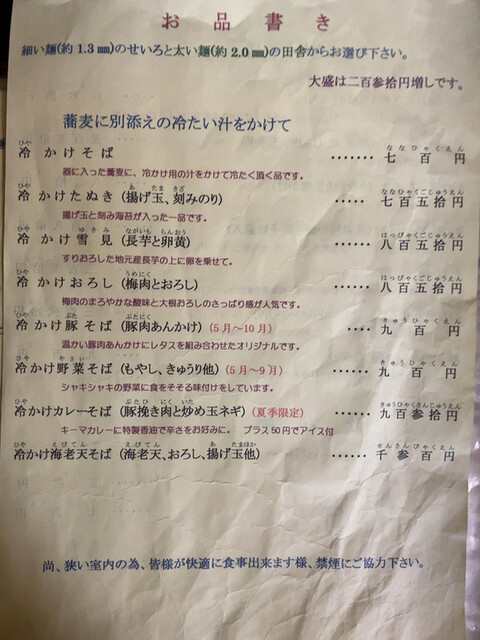 お品書き
細い麺(約1.3㎜)のせいろと太い麺(約2.0㎜)の田舎からお選び下さい。
大盛は二百参拾円増しです。
蕎麦に別添えの冷たい汁をかけて
冷かけそば ‥‥‥‥ 七百円
器に入った蕎麦に、冷かけ用の汁をかけて冷たく頂く品です。
冷かけたぬき(揚げ玉、刻みのり) ‥‥‥ 七百五拾円
揚げ玉と刻み海苔が入った一品です。
冷かけ雪見(長芋と卵黄) ‥‥‥‥ 八百五拾円
すりおろした地元産長芋の上に卵を乗せて。
冷かけおろし(梅肉とおろし) ‥‥‥‥ 八百五拾円
梅肉のまろやかな酸味と大根おろしのさっぱり感が人気です。
冷かけ豚そば(豚肉あんかけ)(5月～10月) ‥‥ 九百円
温かい豚肉あんかけにレタスを組み合わせたオリジナルです。
冷かけ野菜そば(もやし、きゅうり他)(5月～9月) ‥‥‥ 九百円
シャキシャキの野菜に食をそそる味付けをしています。
冷かけカレーそば(豚挽き肉と炒め玉ネギ)(夏季限定) ‥‥‥ 九百参拾円
キーマカレーに特製香油で辛さをお好みに。 プラス50円でアイス付
冷かけ海老天そば(海老天、おろし、揚げ玉他) ‥‥‥ 千参百円
尚、狭い室内の為、皆様が快適に食事出来ます様、禁煙にご協力下さい。